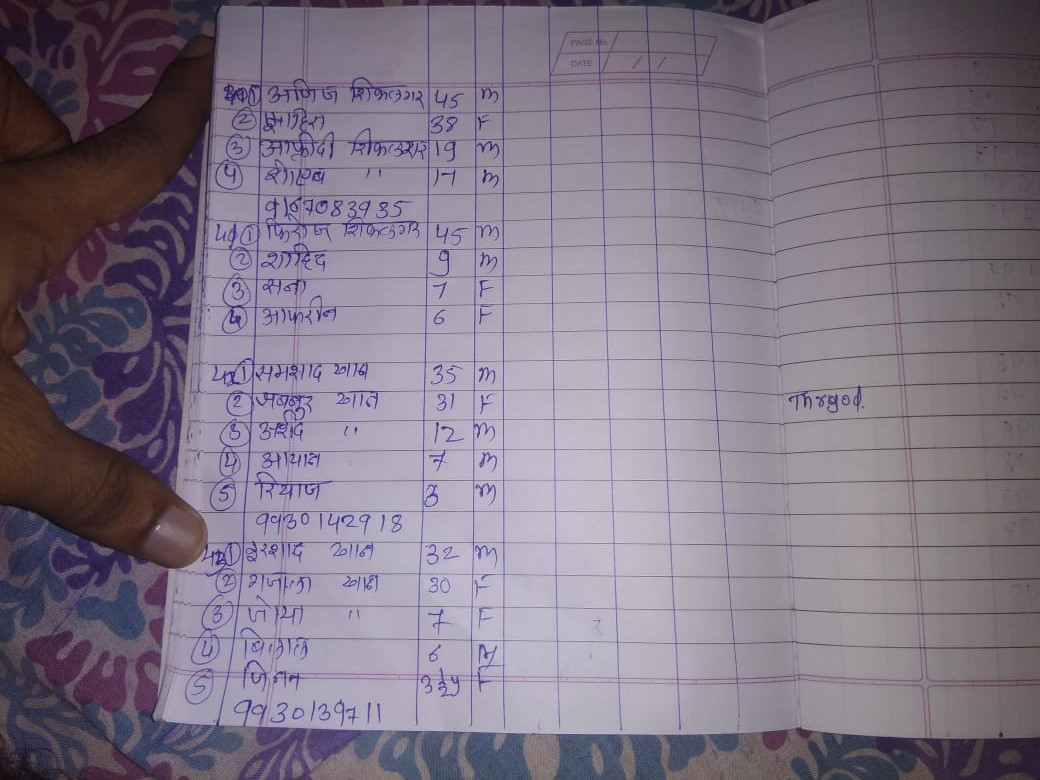 PAGE No.
DATE / /
① अजिज शिकलगर 45 m
② 38 F
③ आफ्रीदी शिकलगर 19 m
④ शोएब " 17 m
9167083935
41 ① फिरोज शिकलगर 45 m
② शाहिद 9 m
③ सना 7 F
④ आफरीन 6 F
42 ① समशाद खान 35 m
② खान 31 F
Thrgod.
③ अर्शद " 12 m
④ आयान 7 m
⑤ रियाज 3 m
9930142918
① इरशाद खान 32 m
② खान 30 F
③ जोया " 7 F
④ बिलाल 6 M
⑤ F
9930139711